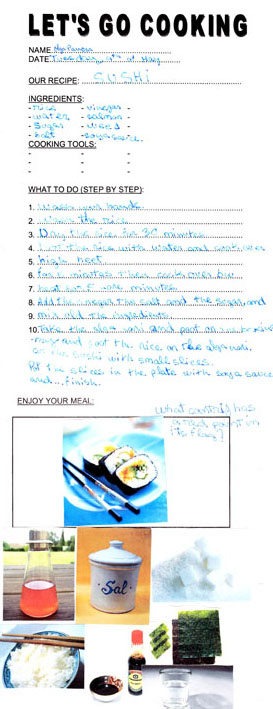 LET'S GO COOKING
NAME Olga
DATE Tuesday, of May
OUR RECIPE: SUSHI
INGREDIENTS:
- rice - vinegar
- water - salmon
- sugar - weed
- salt - soya sauce
COOKING TOOLS:
- - -
- - -
- - -
WHAT TO DO (STEP BY STEP):
1. your hands
2. the rice
3. Dry the rice for 30 minutes
4. the rice with water and cook over
5. high heat
6. for 5 minutes then cook over low
7. heat for 5 more minutes
8. Add the vinegar the salt and the sugar, and
9. mix all the ingredients
10. Take the alga nori and put on the
and put the rice on the alga nori.
the sushi with small slices.
Put the slices in the plate with soya sauce
and... finish.
ENJOY YOUR MEAL:
What country has
a red point on
its flag?
Sal